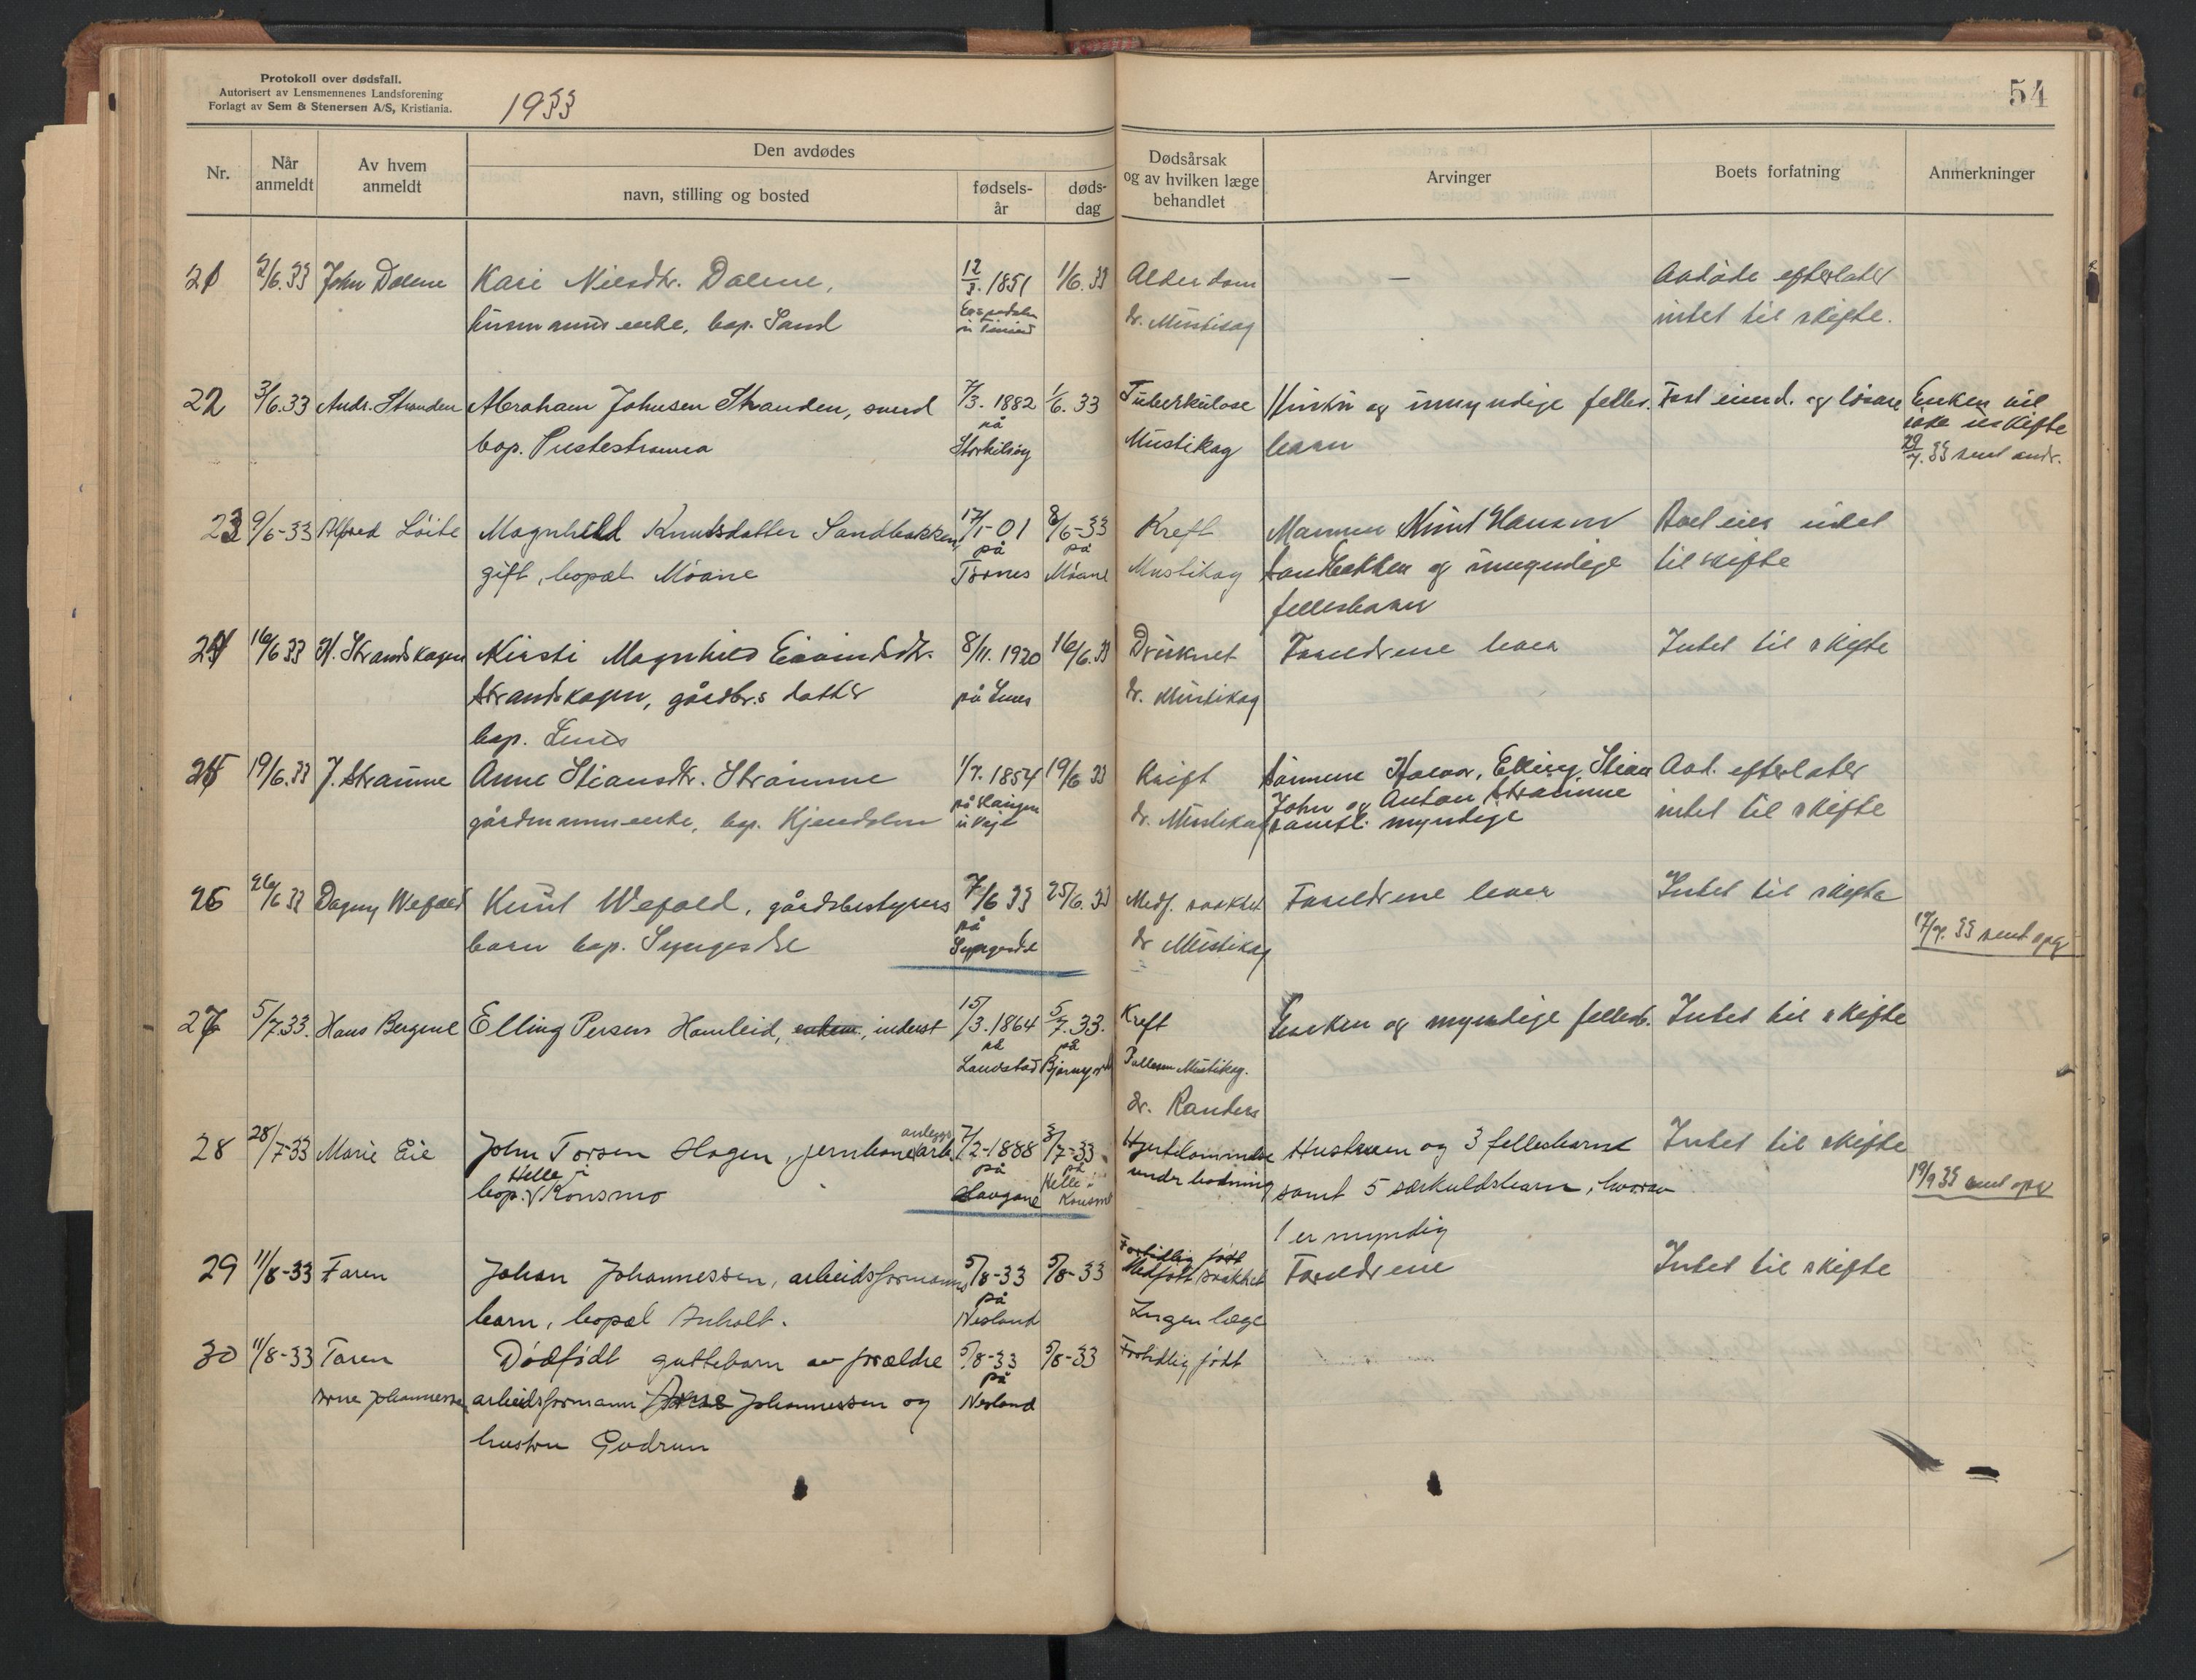 Protokoll over dødsfall.
Autorisert av Lensmennenes Landsforening
Forlagt av Sem & Stenersen A/S, Kristiania.
1933
54
Nr.
Når anmeldt
Av hvem anmeldt
Den avdødes
navn, stilling og bosted
fødsels-år
døds-dag
Dødsårsak og av hvilken læge behandlet
Arvinger
Boets forfatning
Anmerkninger
21 2/6.33 John Dalene Kari Nilsdtr. Dalene, 12/3.1851 1/6.33 Alderdom — Avdøde efterlater
husmannsenke, bop. Sand dr. Mustikag intet til skifte.
22 3/6.33 Andr. Stranden Abraham Johnsen Stranden, smed 7/3.1882 1/6.33 Tuberkulose Hustru og umyndige felles- Fast eiend. og løsøre Enken vil
bop. Prestestranna på Mustikag barn sitte i uskifte
29/7.33 sent andr.
23 9/6-33 Alfred Løite Magnhild Knutsdatter Sandbakken, 17/1-01 8/6-33 Kreft Mannen Knut Hansen Boet eier intet
gift, bopæl Moane på Tørnes på Moane Mustikag Sandbakken og umyndige til skifte
fellesbarn
24 16/6 33 H. Strandskogen Kirsti Magnhild Eivindsdtr. 8/11.1920 16/6.33 Druknet Foreldrene lever Intet til skifte
Strandskogen, gårdbr.s datter på Lunes dr. Mustikag
bop. Lunes
25 19/6.33 J. Straume Anne Stiansdtr. Straume 1/7.1854 19/6 33 Kreft Sønnene Halvor, Elling, Stian Avd. efterlater
gårdmannsenke, bop. Kjendalen dr. Mustikag John og Anton Straume intet til skifte
samtl. myndige
26 26/6 33 Dagny Wefald Knut Wefald, gårdsbestyrers 7/6 33 25/6.33 Medf. svakhet Foreldrene lever Intet til skifte
barn bop. Syngesdl på Syngesdl dr Mustikag 17/7.33 sent opg
27 5/7.33. Hans Bergene Elling Persen Hamleid, inderst 15/3.1864 5/7.33. Kreft Enken og myndige fellesb. Intet til skifte
på Lauvstad på Mustikag.
dr. Randers
28 28/7-33 Marie Eie John Torsen Hagen, jernbaneanleggsarb. 7/2-1888 3/7-33 Hjertelammelse Hustruen og 3 fellesbarn Intet til skifte
bop. Helle i Konsmo på Haugane på Helle i Konsmo under badning samt 5 særkuldsbarn, hvorav 19/9 33 sent opg
1 er myndig
29 11/8-33 Faren Johan Johannessen, arbeidsformanns 5/8-33 5/8-33 For tidlig født Medfødt svakhet Foreldrene Intet til skifte
barn, bopæl Anholt. på Nesland Ingen læge
30 11/8-33 Faren Dødfødt guttebarn av forældre 5/8-33 5/8-33 For tidlig født
Arne Johannessen arbeidsformann Arne Johannessen og på Nesland
hustru Gudrun